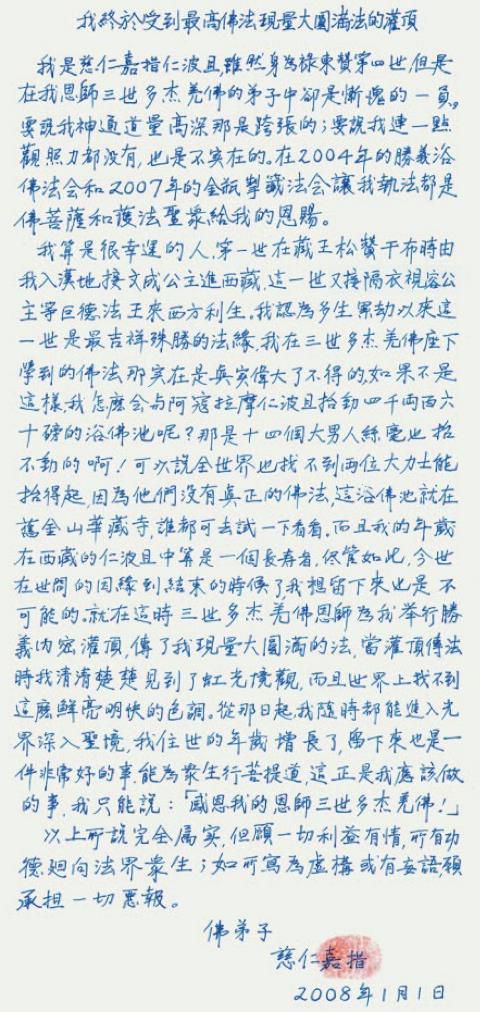 我終於受到最高佛法現量大圓滿法的灌頂
我是慈仁嘉措仁波且,雖然身為祿東贊第四世,但是
在我恩師三世多杰羌佛的弟子中卻是慚愧的一員。
要說我神通道量高深那是誇張的;要說我連一點
觀照力都沒有,也是不实在的。在2004年的勝義浴
佛法会和2007年的金瓶掣籤法会讓我執法都是
佛菩薩和護法聖眾給我的恩賜。
我算是很幸運的人,第一世在藏王松贊干布時由
我入漢地接文成公主進西藏,這一世又接隔衣視容公
主等巨德法王來西方利生。我認為多生累劫以來這
一世是最吉祥殊勝的法緣,我在三世多杰羌佛座下
學到的佛法那实在是真实偉大了不得的,如果不是
這樣,我怎麼会与阿寇拉摩仁波且抬動四千两百六
十磅的浴佛池呢?那是十四個大男人絲毫也抬
不動的啊!可以說全世界也找不到两位大力士能
抬得起,因為他們沒有真正的佛法,這浴佛池就在
舊金山華藏寺,誰都可去試一下看看。而且我的年歲
在西藏的仁波且中算是一個長壽者,儘管如此,今世
在世間的因緣到結束的時候了,我想留下來也是不
可能的。就在這時三世多杰羌佛恩師為我举行勝
義内密灌頂,傳了我現量大圓滿的法,當灌頂傳法
時我清清楚楚見到了虹光境觀,而且世界上找不到
這麼鮮亮明快的色調。從那日起,我隨時都能進入光
界深入聖境,我住世的年歲增長了,留下來也是一
件非常好的事,能為眾生行菩提道,這正是我應該做
的事,我只能說:「感恩我的恩師三世多杰羌佛!」
以上所說完全属实,但願一切利益有情,所有功
德迴向法界眾生;如所寫為虛構或有妄語,願
承担一切惡報。
佛弟子
慈仁嘉措
2008年1月1日